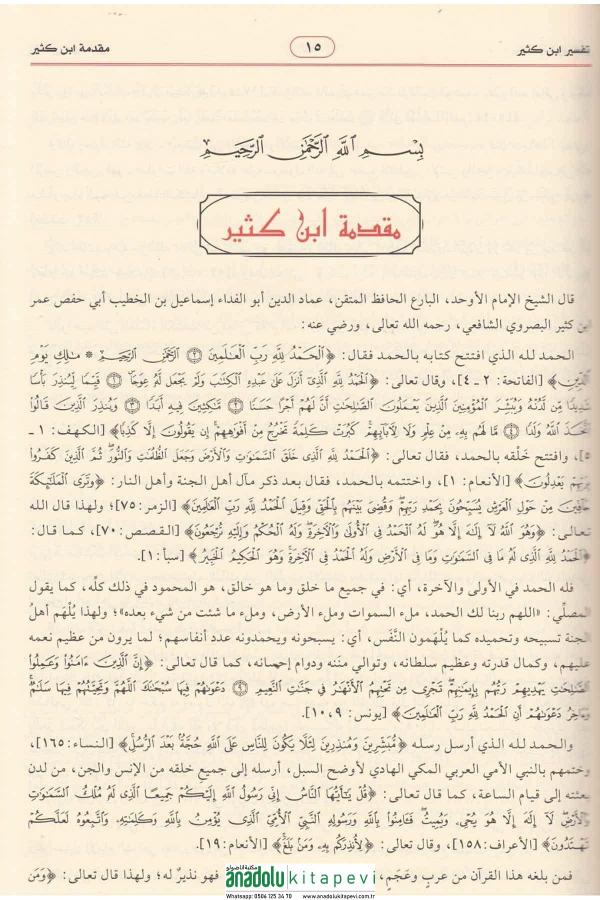 تفسير ابن كثير
١٥
مقدمة ابن كثير
بِسْمِ اللَّهِ الرَّحْمَٰنِ الرَّحِيمِ
مقدمة ابن كثير
قال الشيخ الإمام الأوحد، البارع الحافظ المتقن، عماد الدين أبو الفداء إسماعيل بن الخطيب أبي حفص عمر
ابن كثير البصروي الشافعي، رحمه الله تعالى، ورضي عنه:
الحمد لله الذي افتتح كتابه بالحمد فقال: ﴿الْحَمْدُ لِلَّهِ رَبِّ الْعَالَمِينَ ۝٢ الرَّحْمَٰنِ الرَّحِيمِ * مَالِكِ يَوْمِ
الدِّينِ﴾ [الفاتحة: ٢ ـ ٤]، وقال تعالى: ﴿الْحَمْدُ لِلَّهِ الَّذِي أَنزَلَ عَلَىٰ عَبْدِهِ الْكِتَابَ وَلَمْ يَجْعَل لَّهُ عِوَجًا ۝١ قَيِّمًا لِّيُنذِرَ بَأْسًا
شَدِيدًا مِّن لَّدُنْهُ وَيُبَشِّرَ الْمُؤْمِنِينَ الَّذِينَ يَعْمَلُونَ الصَّالِحَاتِ أَنَّ لَهُمْ أَجْرًا حَسَنًا ۝٢ مَّاكِثِينَ فِيهِ أَبَدًا ۝٣ وَيُنذِرَ الَّذِينَ قَالُوا
اتَّخَذَ اللَّهُ وَلَدًا ۝٤ مَّا لَهُم بِهِ مِنْ عِلْمٍ وَلَا لِآبَائِهِمْ كَبُرَتْ كَلِمَةً تَخْرُجُ مِنْ أَفْوَاهِهِمْ إِن يَقُولُونَ إِلَّا كَذِبًا﴾ [الكهف: ١ ـ
٥]، وافتتح خلقه بالحمد، فقال تعالى: ﴿الْحَمْدُ لِلَّهِ الَّذِي خَلَقَ السَّمَاوَاتِ وَالْأَرْضَ وَجَعَلَ الظُّلُمَاتِ وَالنُّورَ ثُمَّ الَّذِينَ كَفَرُوا
بِرَبِّهِمْ يَعْدِلُونَ﴾ [الأنعام: ١]، واختتمه بالحمد، فقال بعد ذكر مآل أهل الجنة وأهل النار: ﴿وَتَرَى الْمَلَائِكَةَ
حَافِّينَ مِنْ حَوْلِ الْعَرْشِ يُسَبِّحُونَ بِحَمْدِ رَبِّهِمْ وَقُضِيَ بَيْنَهُم بِالْحَقِّ وَقِيلَ الْحَمْدُ لِلَّهِ رَبِّ الْعَالَمِينَ﴾ [الزمر: ٧٥]؛ ولهذا قال الله
تعالى: ﴿وَهُوَ اللَّهُ لَا إِلَٰهَ إِلَّا هُوَ لَهُ الْحَمْدُ فِي الْأُولَىٰ وَالْآخِرَةِ وَلَهُ الْحُكْمُ وَإِلَيْهِ تُرْجَعُونَ﴾ [القصص: ٧٠]، كما قال:
﴿الْحَمْدُ لِلَّهِ الَّذِي لَهُ مَا فِي السَّمَاوَاتِ وَمَا فِي الْأَرْضِ وَلَهُ الْحَمْدُ فِي الْآخِرَةِ وَهُوَ الْحَكِيمُ الْخَبِيرُ﴾ [سبأ: ١].
فله الحمد في الأولى والآخرة، أي: في جميع ما خلق وما هو خالق، هو المحمود في ذلك كلّه، كما يقول
المصلّي: «اللهم ربنا لك الحمد، ملء السموات وملء الأرض، وملء ما شئت من شيء بعده»؛ ولهذا يُلْهَم أهلُ
الجنة تسبيحه وتحميده كما يُلْهَمون النَّفَس، أي: يسبحونه ويحمدونه عدد أنفاسهم؛ لما يرون من عظيم نعمه
عليهم، وكمال قدرته وعظيم سلطانه، وتوالي مننه ودوام إحسانه، كما قال تعالى: ﴿إِنَّ الَّذِينَ آمَنُوا وَعَمِلُوا
الصَّالِحَاتِ يَهْدِيهِمْ رَبُّهُم بِإِيمَانِهِمْ تَجْرِي مِن تَحْتِهِمُ الْأَنْهَارُ فِي جَنَّاتِ النَّعِيمِ ۝٩ دَعْوَاهُمْ فِيهَا سُبْحَانَكَ اللَّهُمَّ وَتَحِيَّتُهُمْ فِيهَا سَلَامٌ
وَآخِرُ دَعْوَاهُمْ أَنِ الْحَمْدُ لِلَّهِ رَبِّ الْعَالَمِينَ﴾ [يونس: ٩، ١٠].
والحمد لله الذي أرسل رسله ﴿مُّبَشِّرِينَ وَمُنذِرِينَ لِئَلَّا يَكُونَ لِلنَّاسِ عَلَى اللَّهِ حُجَّةٌ بَعْدَ الرُّسُلِ﴾ [النساء: ١٦٥]،
وختمهم بالنبي الأمي العربي المكي الهادي لأوضح السبل، أرسله إلى جميع خلقه من الإنس والجن، من لدن
بعثته إلى قيام الساعة، كما قال تعالى: ﴿قُلْ يَا أَيُّهَا النَّاسُ إِنِّي رَسُولُ اللَّهِ إِلَيْكُمْ جَمِيعًا الَّذِي لَهُ مُلْكُ السَّمَاوَاتِ
وَالْأَرْضِ لَا إِلَٰهَ إِلَّا هُوَ يُحْيِي وَيُمِيتُ فَآمِنُوا بِاللَّهِ وَرَسُولِهِ النَّبِيِّ الْأُمِّيِّ الَّذِي يُؤْمِنُ بِاللَّهِ وَكَلِمَاتِهِ وَاتَّبِعُوهُ لَعَلَّكُمْ
تَهْتَدُونَ﴾ [الأعراف: ١٥٨]، وقال تعالى: ﴿لِأُنذِرَكُم بِهِ وَمَن بَلَغَ﴾ [الأنعام: ١٩].
فمن بلغه هذا القرآن من عربٍ وعَجَمٍ، فهو نذيرٌ له؛ ولهذا قال تعالى: ﴿وَمَن
anadolu kitapevi
Whatsapp: 0506 125 34 70 www.anadolukitapevi.com.tr